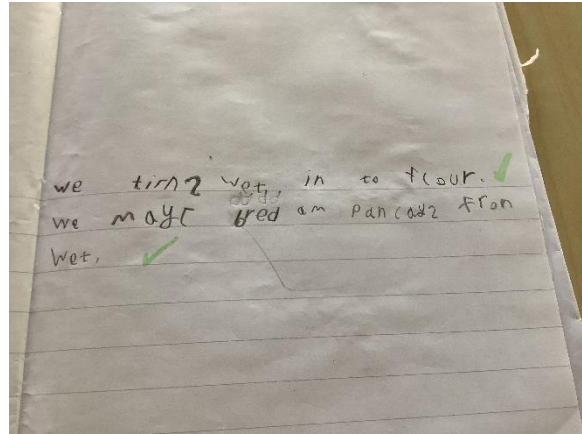 we tirn2 wet, in to flour.
we mayc bred am pancay2 fron
Wet,